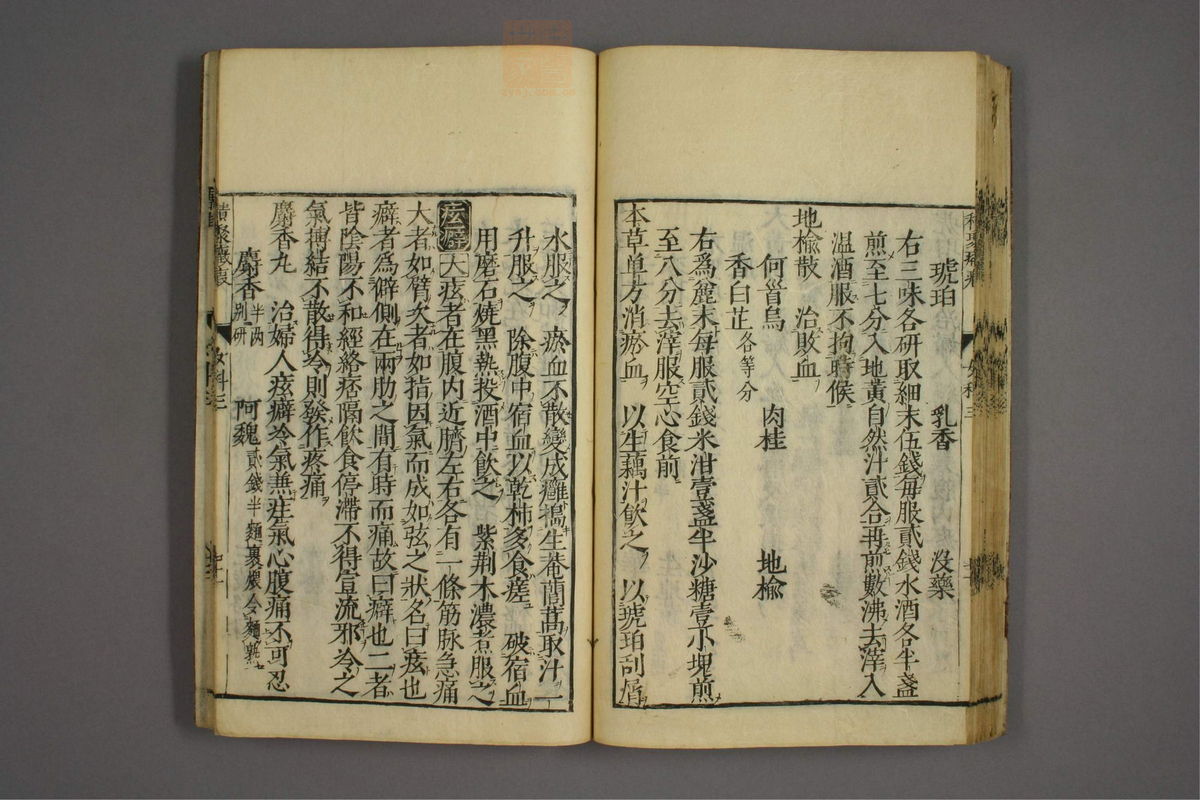 琥珀 乳香 没藥
右三味各研取細末伍錢每服貳錢水酒各半盞
煎至七分入地黃自然汁貳合再煎數沸去滓入
温酒服不拘時候
地榆散 治敗血
何首烏 肉桂 地榆
香白芷各等分
右爲麄末每服貳錢米泔壹盞半沙糖壹小塊煎
至八分去滓服空心食前
本草单方消瘀血 以生藕汁飲之 以琥珀刮屑
水服之 瘀血不散變成癰搗生菴䕡蒿取汁一
升服之 除腹中宿血以乾柿多食瘥 破宿血
用磨石燒黑熱投酒中飲之 紫荆木濃煮服之
痃癖 大痃者在腹内近臍左右各有一條筋脉急痛
大者如臂次者如指因氣而成如弦之狀名曰痃也
癖者爲僻側在兩肋之間有時而痛故曰癖也二者
皆陰陽不和經絡痞隔飲食停滯不得宣流邪冷之
氣搏結不散得冷則發作疼痛
麝香九 治婦人痃癖冷氣兼疰氣心腹痛不可忍
麝香半两别研 阿魏貳錢半麵裹煨令麵熟
女科三